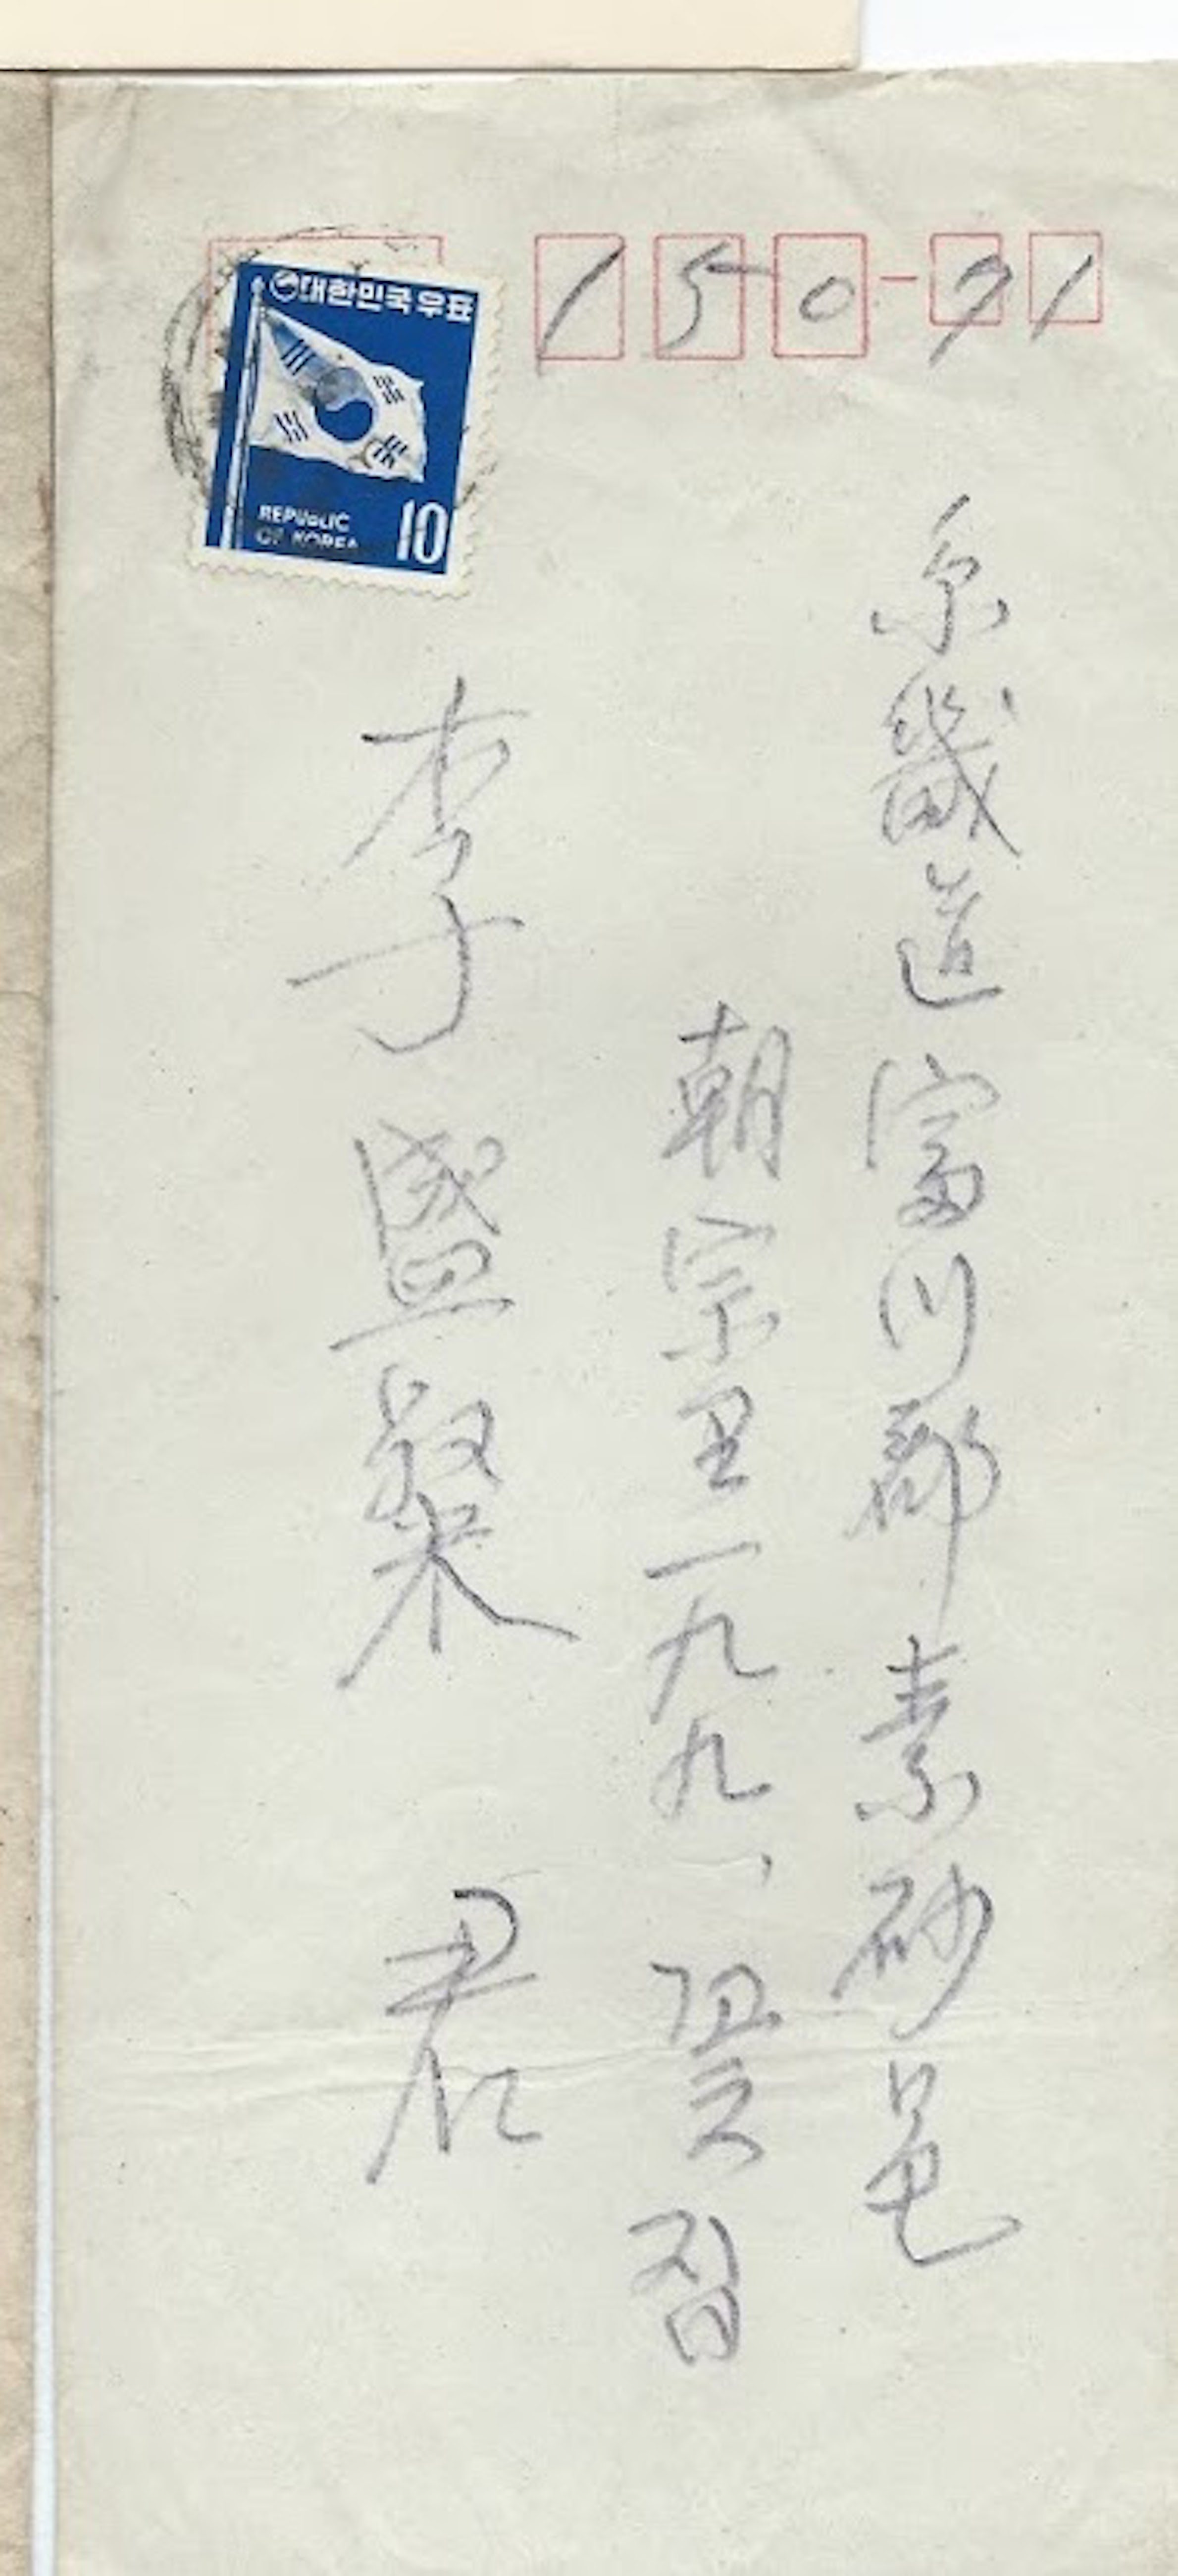 대한민국우표
REPUBLIC
OF KOREA
10
150-71
京畿道富川郡素砂邑
朝宗里一九九、꽃집
李盛粲 君